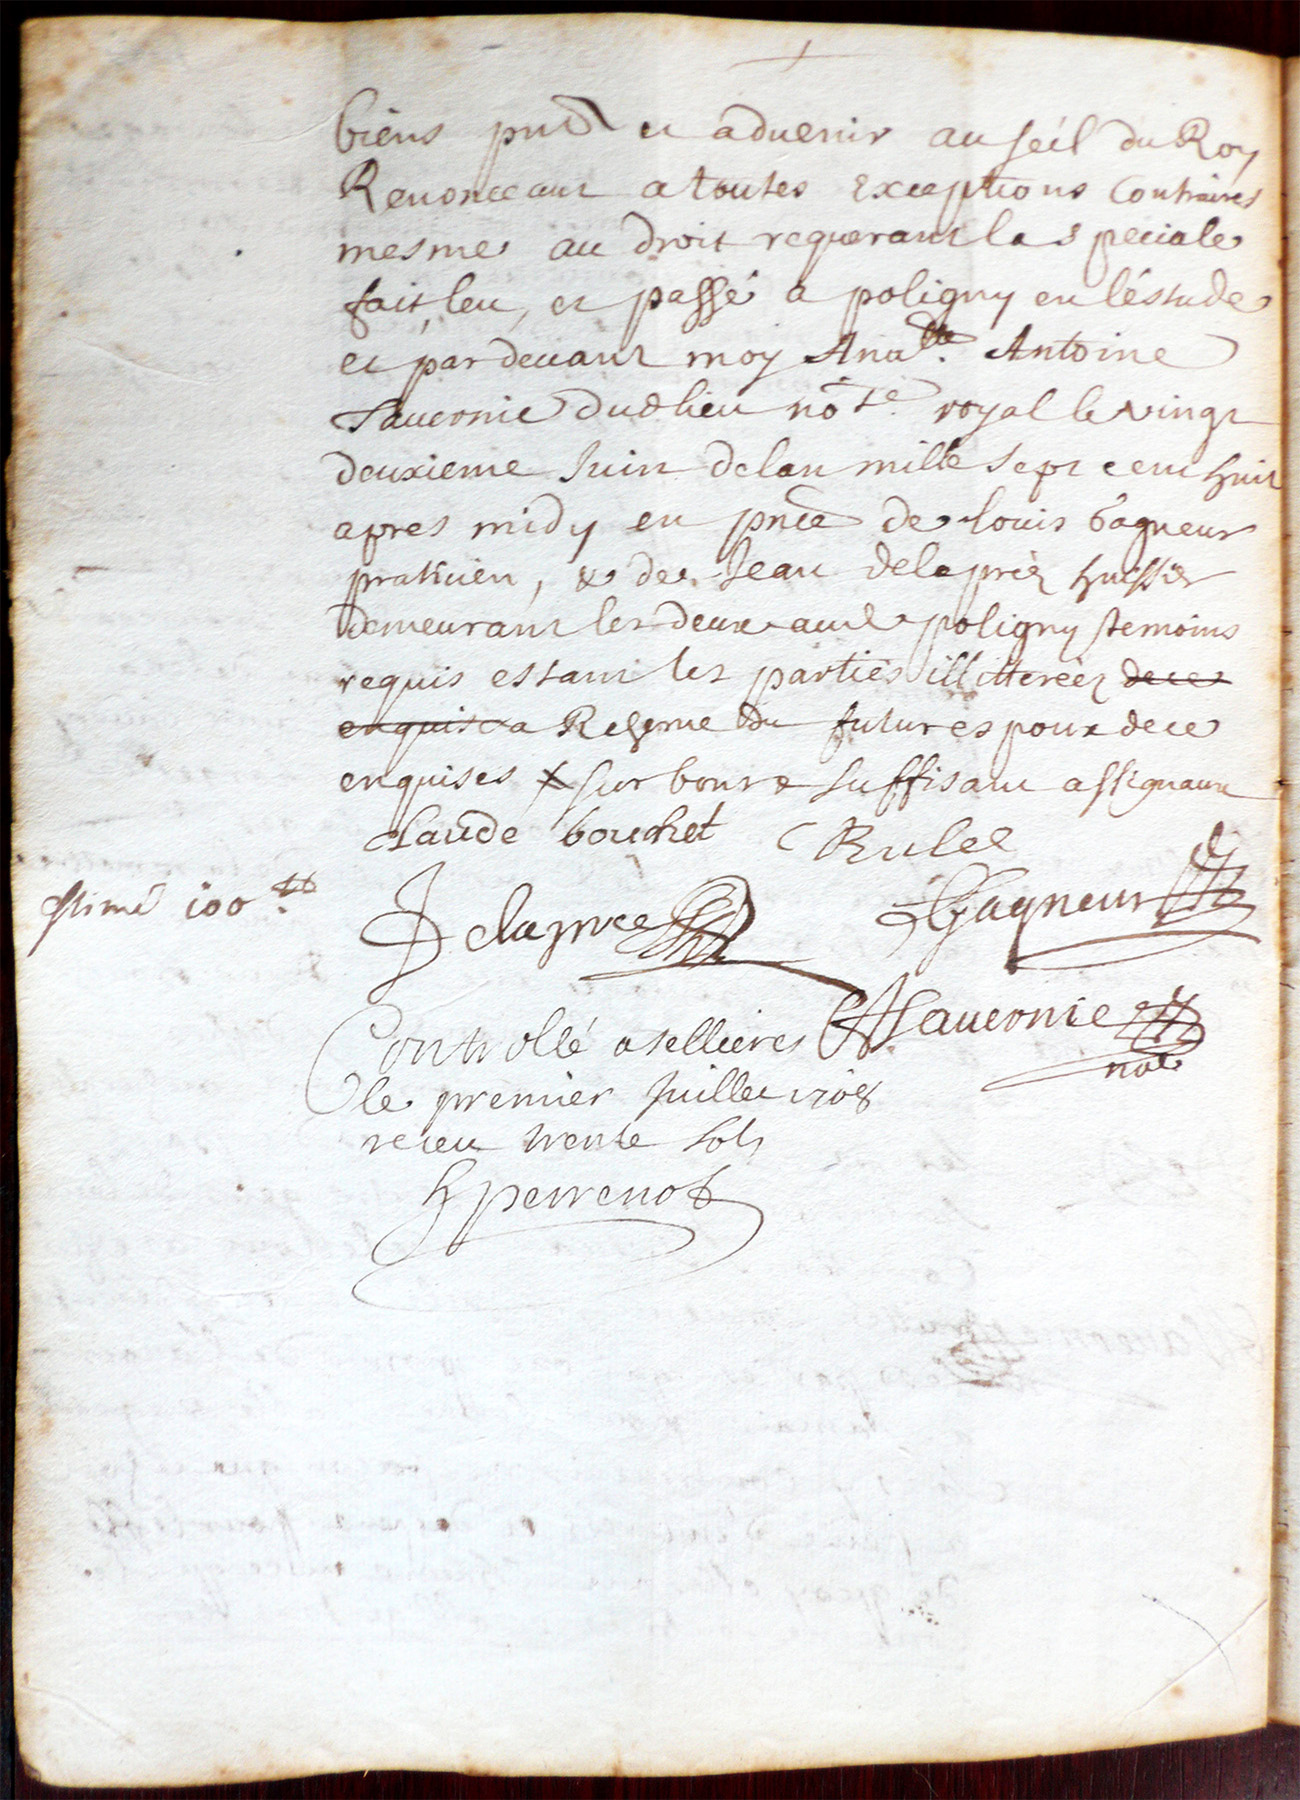 biens pnts et aduenir au seel du Roy
Renonceant a toutes exceptions Contraires
mesme au droit requerant la speciale
fait, leu, et passé a poligny en l'éstude
et par deuant moy Anathe. Antoine
Sauconie dud lieu notre. royal le vingt
deuxieme Juin de lan mille sept cent huit
apres midy en pnce de louis Gagneur
praticien, & de Jean delaprée huissier
demeurant les deux aud poligny temoins
requis estant les parties illitereéz de ce
enquis a Reserue du futur espoux de ce
enquises sur bon et suffisant assignaux
claude bouchet CRulee
estimé 100 ₶.
J delapree LGagneur
AASauconie
note
Controllé a sellieres
le premier Juillet 1708
receu trente sols
perrenot